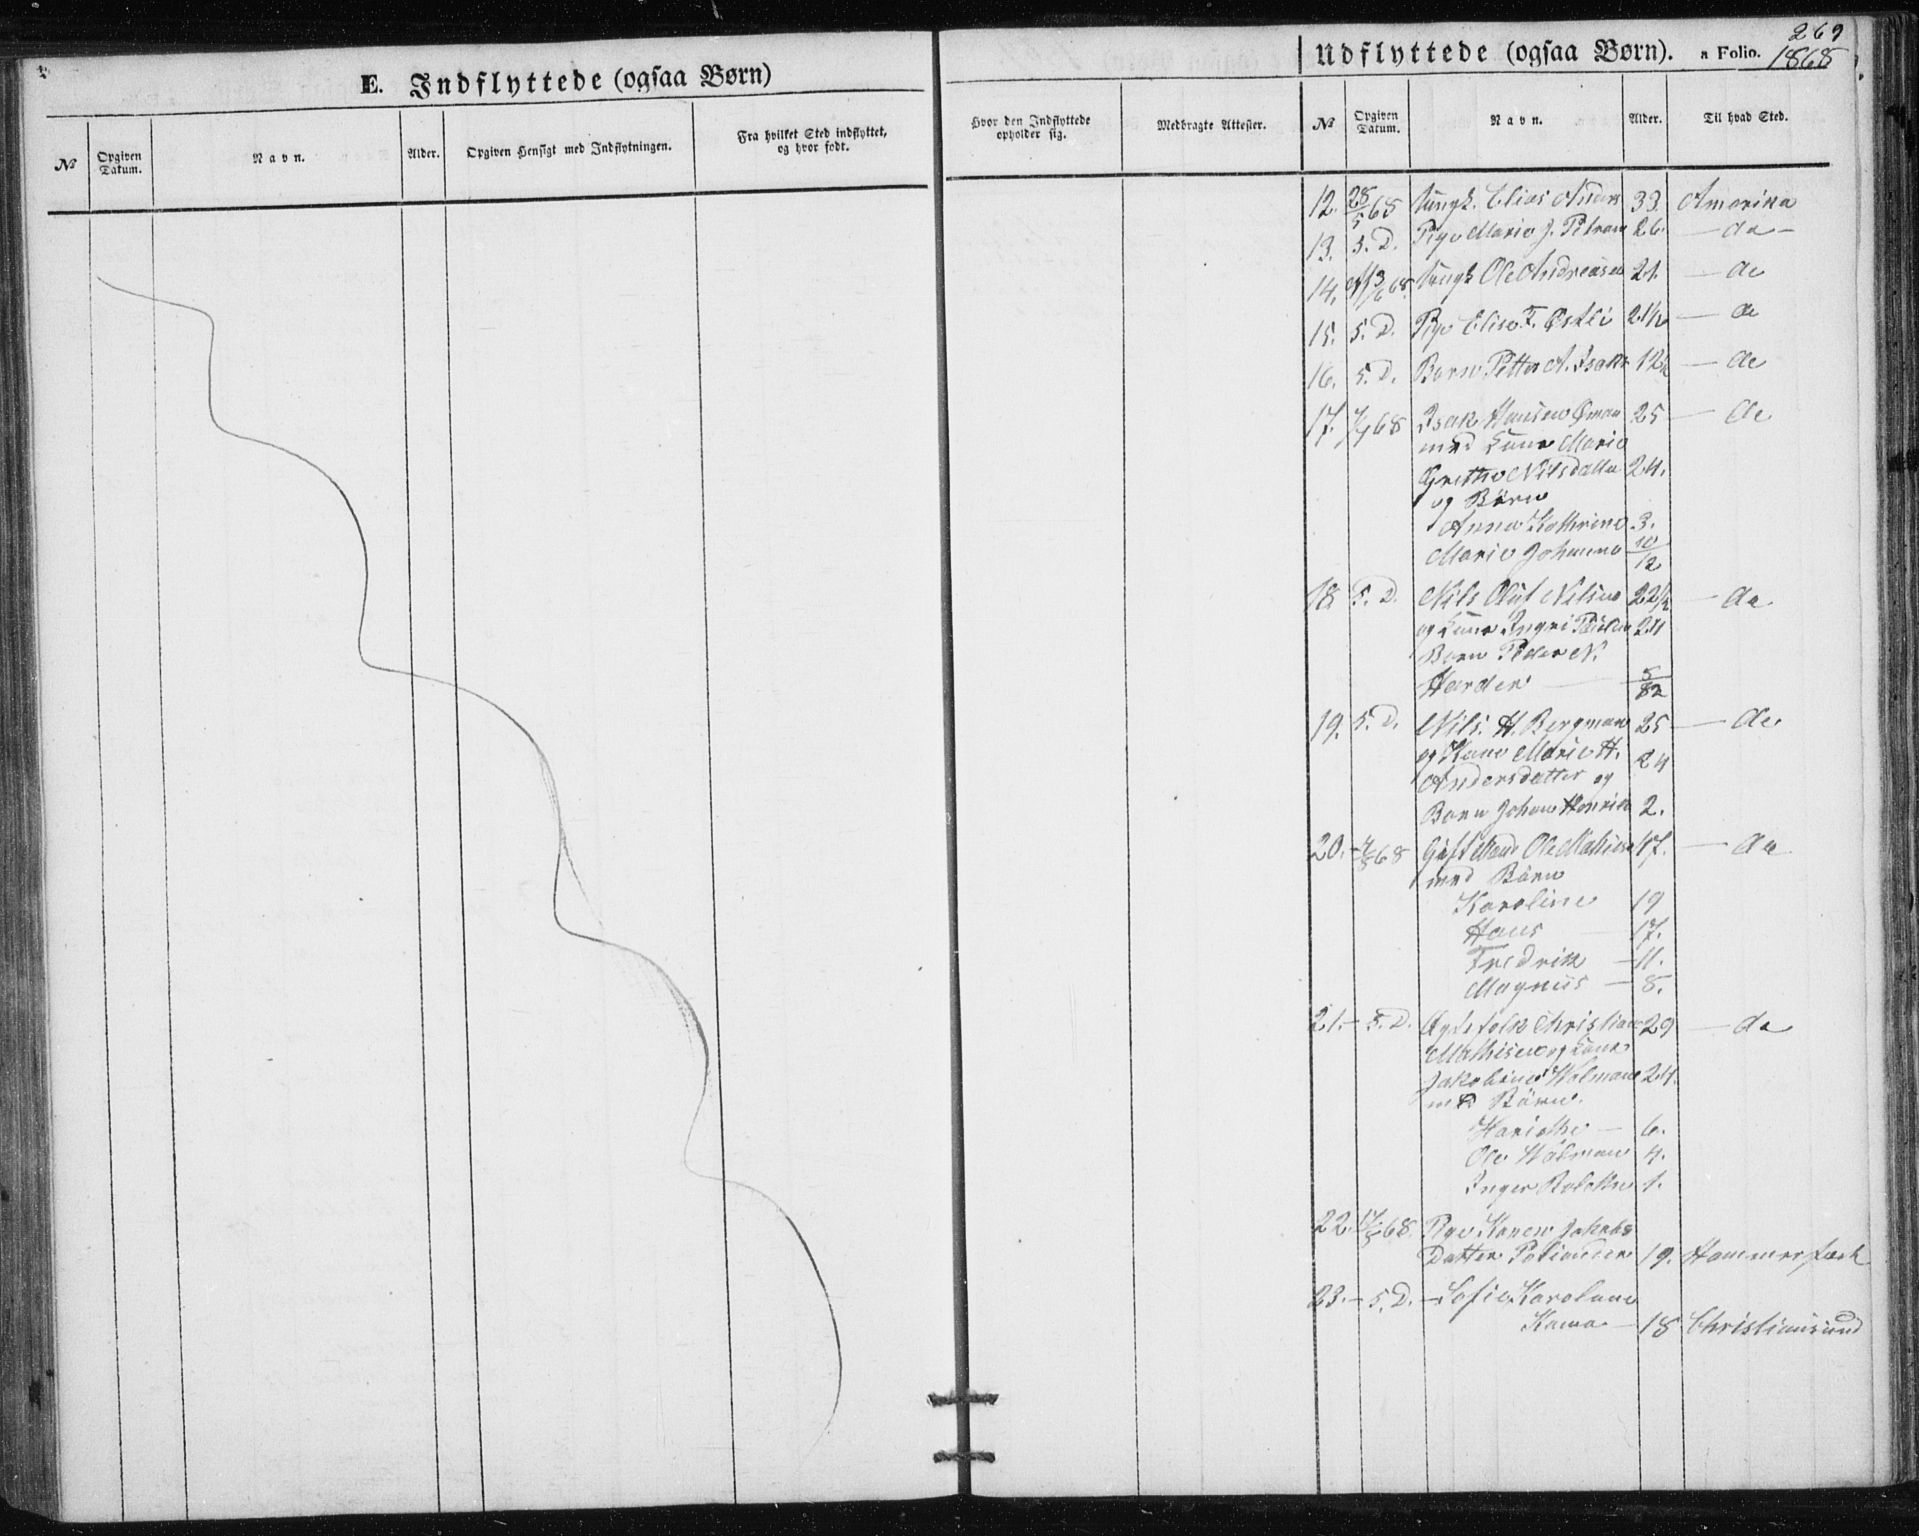 E. Indflyttede (ogsaa Børn)
No
Opgiven Datum.
Navn.
Alder.
Opgiven Hensigt med Indflytningen.
Fra hvilket Sted indflyttet, og hvor født.
Hvor den Indflyttede opholder sig.
Medbragte Attester.
269
Udflyttede (ogsaa Børn). a Folio. 1868
No
Opgiven Datum.
Navn.
Alder.
Til hvad Sted.
12. 28/5 68 Ungk. Elias Anders 33. Amerika
13. S. D. Pige Marie J. 26. - do -
14. 68. Ungk Ole Andreasen 21. - do
15. S. D. Pige Elise F. Østli 21½ - do
16. S. D. Barn Petter A. Isaks 12½ - do
17. 68 Isak Hansen 25 - do
med Kone Marie
Grethe Nilsdatter 24.
og Børn
Anna Kathrine 3.
Marie Johanna 10/12
18 S. D. Nils Oluf Nilsen 22½ - do
og Kone Ingri 24
Barn Peder N.
Harder
19. S. D. Nils. H. Bergman 25 - do
og Kone Marie H. 24
Andersdatter og
Barn Johan Henrik 2.
20. 68 Ole Mathisen 47. - do
med Børn
Karoline 19
Hans - 17.
Fredrik - 11.
Magnus - 8.
21. - S. D. Ægtefolk Christian 29 - do
Mathisen og Kone
Jakobine Holman 24.
med Børn.
- 6.
Ole Holman 4.
Inger 1.
22. 68. Pige Karen Jakobs
Datter 19. Hammerfest
23. - S. D. - Sofie Karoline
- 18 Christiansund